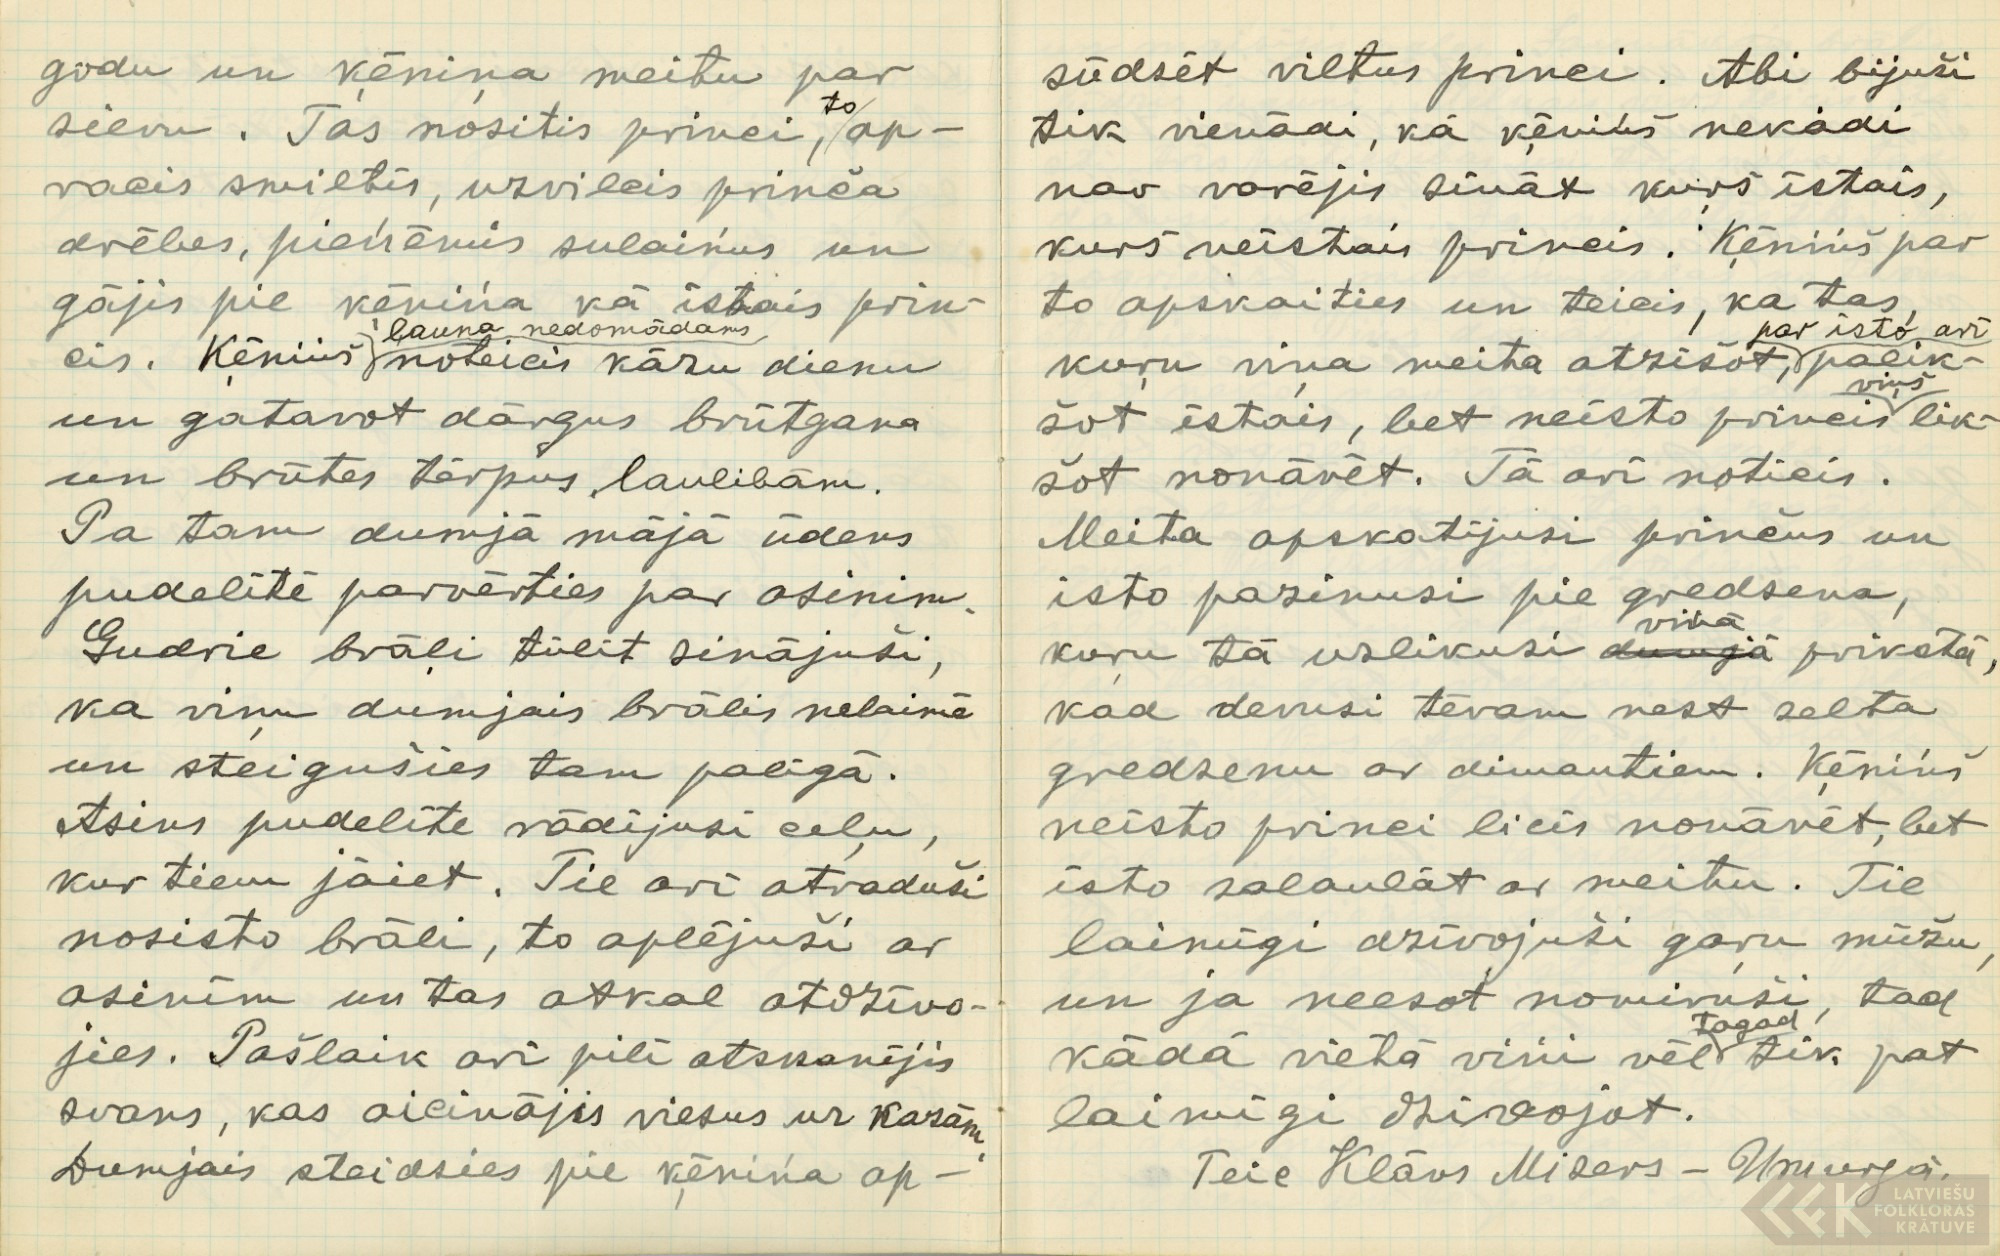 godu un ķēniņa meitu par
sievu. Tas nositis princi, to ap-
racis smiltīs, uzvilcis prinča
drēbes, pieņēmis sulaiņus un
gājis pie ķēniņa kā īstais prin-
cis. Ķēniņš launa nedomādams noteicis kāzu dienu
un gatavot dārgus brūtgana
un brūtes tērpus laulibām.
Pa tam dumjā mājā ūdens
pudelītē parvērties par asinim.
Gudrie brāļi tūlit zinājuši,
ka viņu dumjais brālis nelaimē
un steigušies tam palīgā.
Asins pudelīte rādījusi ceļu,
kur tiem jāiet. Tie arī atraduši
nosisto brāli, to aplējuši ar
asinīm un tas atkal atdzīvo-
jies. Pašlaik arī pilī atskanējis
zvans, kas aicinājis viesus uz kazām.
Dumjais steidzies pie ķēniņa ap-
sūdzēt viltus princi. Abi bijuši
tik vienādi, kā ķēniņš nekādi
nav varējis zināt kuŗš īstais,
kurš neīstais princis. Ķēniņš par
to apskaities un teicis, ka tas,
kuŗu viņa meita atzīšot, par īsto arī palik-
šot īstais, bet neīsto princis viņš lik-
šot nonāvēt. Tā arī noticis.
Meita apskatījusi prinčus un
isto pazinusi pie gredzena,
kuŗu tā uzlikusi dumjā viņā pirkstā,
kad devusi tēvam nest zelta
gredzenu ar dimantiem. Ķēniņš
neīsto princi licis nonāvēt, bet
īsto salaulāt ar meitu. Tie
laimīgi dzīvojuši gaŗu mūžu,
un ja neesot nomiruši, tad
kādā vietā viņi vēl tagad tik pat
laimīgi dzīvojot.
Teic Klāvs Mizers – Umurgā.
LATVIEŠU
FOLKLORAS
KRĀTUVE